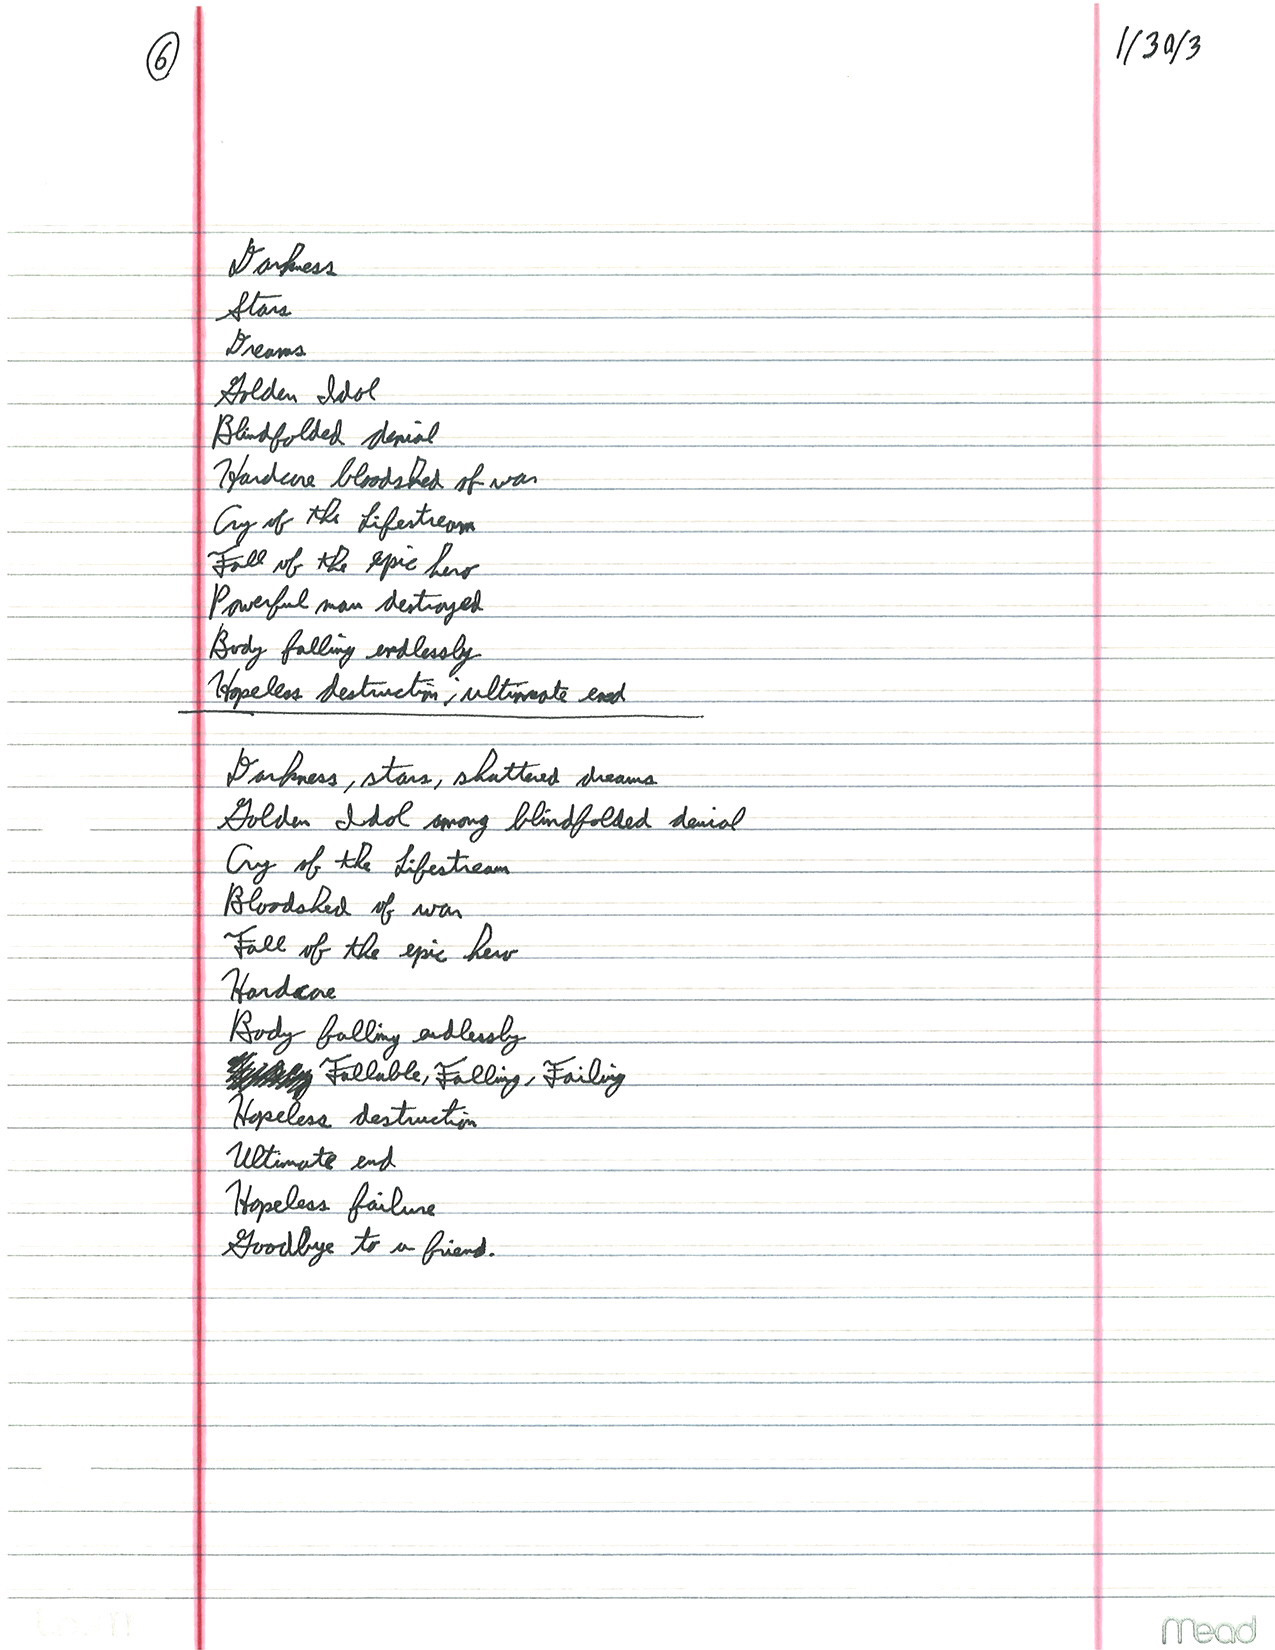 6
1/30/3
Darkness
Stars
Dreams
Golden Idol
Blindfolded denial
Hardcore bloodshed of war
Cry of the Lifestream
Fall of the epic hero
Powerful man destroyed
Body falling endlessly
Hopeless destruction; ultimate end
Darkness, stars, shattered dreams
Golden Idol among blindfolded denial
Cry of the Lifestream
Bloodshed of war
Fall of the epic hero
Hardcore
Body falling endlessly
Fallable, Falling, Failing
Hopeless destruction
Ultimate end
Hopeless failure
Goodbye to a friend.
Mead